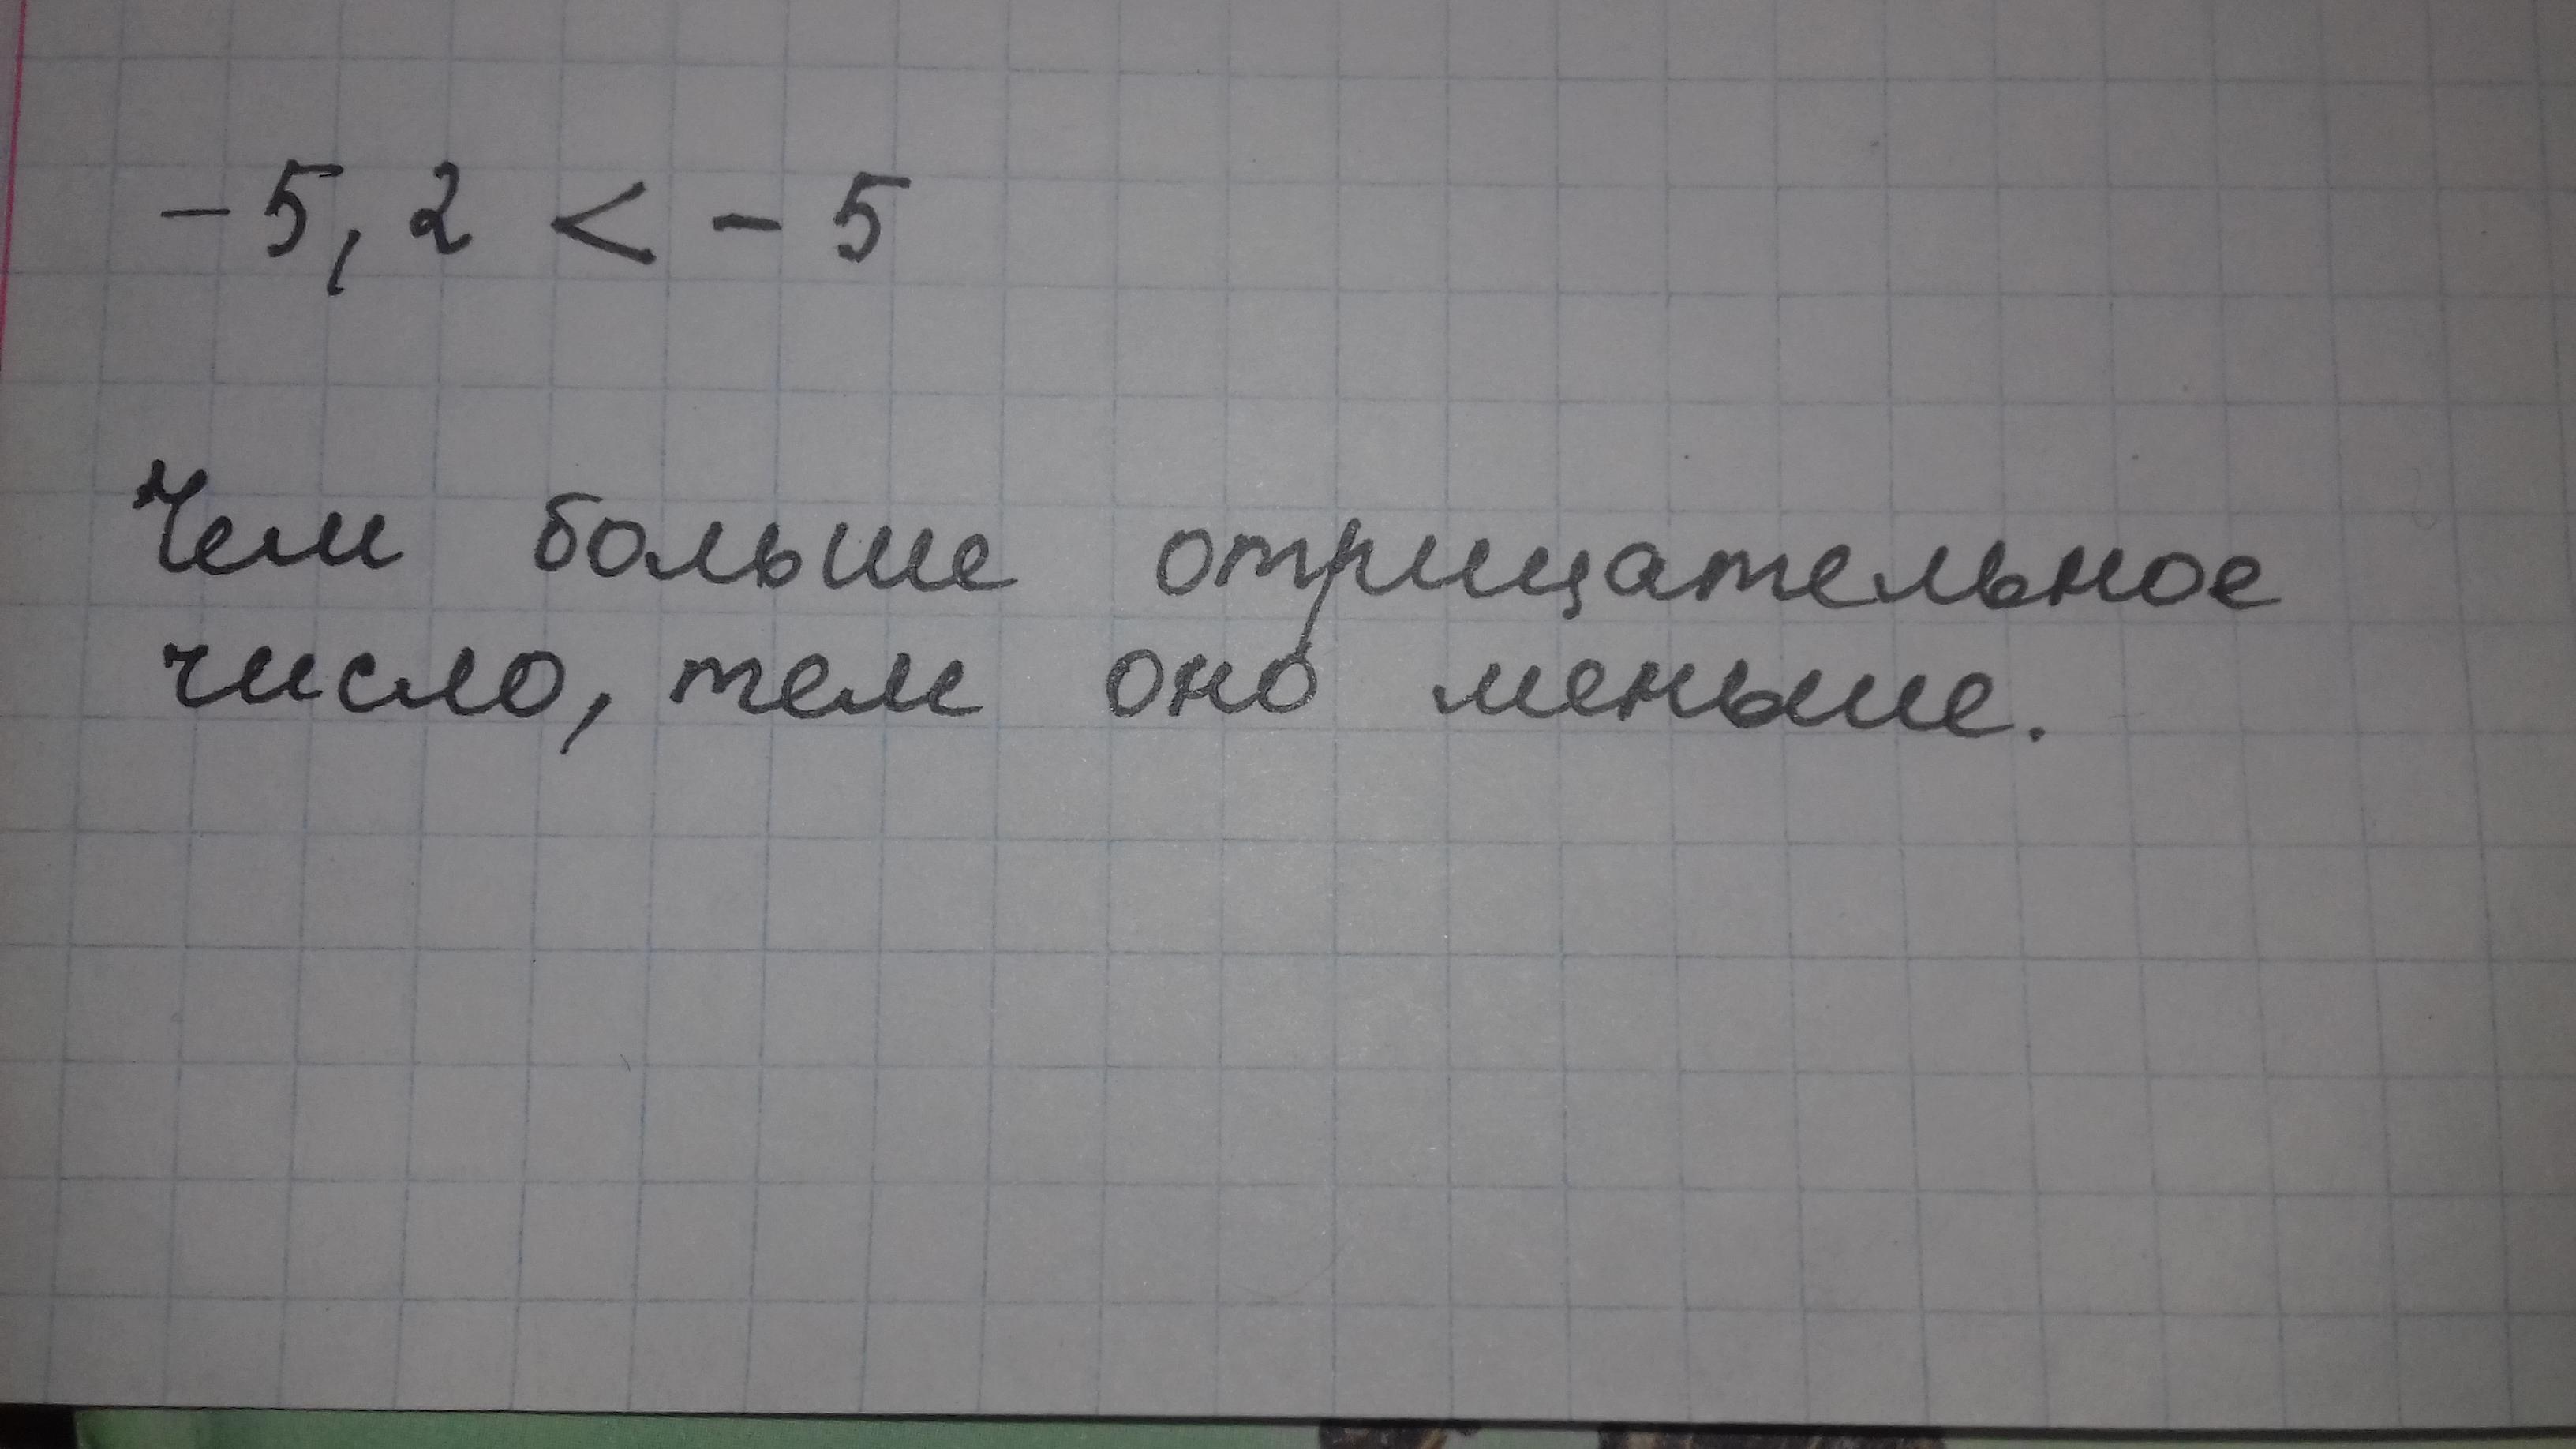 -5,2 < -5
Чем больше отрицательное
число, тем оно меньше.